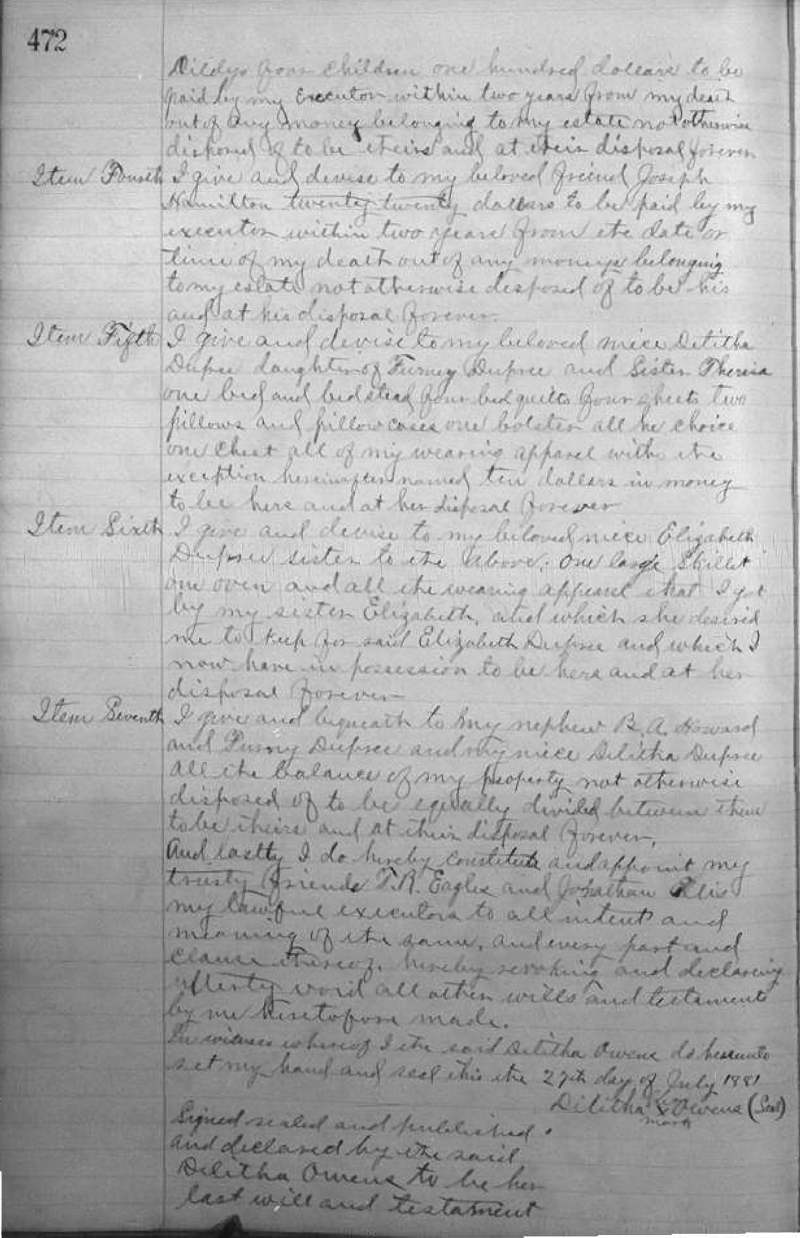 472
Dildys four children one hundred dollars to be
paid by my Executor within two years from my death
out of any money belonging to my estate not otherwise
disposed of to be theirs and at their disposal forever
Item Fourth I give and devise to my beloved friend Joseph
Hamilton twenty twenty dollars to be paid by my
executor within two years from the date or
time of my death out of any moneys belonging
to my estate not otherwise disposed of to be his
and at his disposal forever.
Item Fifth I give and devise to my beloved niece Delitha
Dupree daughter of Furney Dupree and Sister Theresa
one bed and bedstead four bed quilts four sheets two
pillows and pillow cases one bolster all he choice
one chest all of my wearing apparel with the
exception hereinafter named ten dollars in money
to be hers and at her disposal forever
Item Sixth I give and devise to my beloved niece Elizabeth
Dupree sister to the above, One large Skillet
one oven and all the wearing apparel that I got
by my sister Elizabeth, and which she desired
me to keep for said Elizabeth Dupree and which I
now have in possession to be hers and at her
disposal forever
Item Seventh I give and bequeath to my nephew B. A. Howard
and Furny Dupree and my niece Delitha Dupree
all the balance of my property not otherwise
disposed of to be equally divided between them
to be theirs and at their disposal forever,
And lastly I do hereby constitute and appoint my
trusty friends T. R. Eagles and Jonathan
my lawful executors to all intents and
meaning of the same, and every part and
clause thereof, hereby revoking and declaring
utterly void all other wills and testaments
by me heretofore made.
In witness whereof I the said Delitha Owens do hereunto
set my hand and seal this the 27th day of July 1881
Delitha X Owens (Seal)
mark
Signed sealed and published
and declared by the said
Delitha Owens to be her
last will and testament